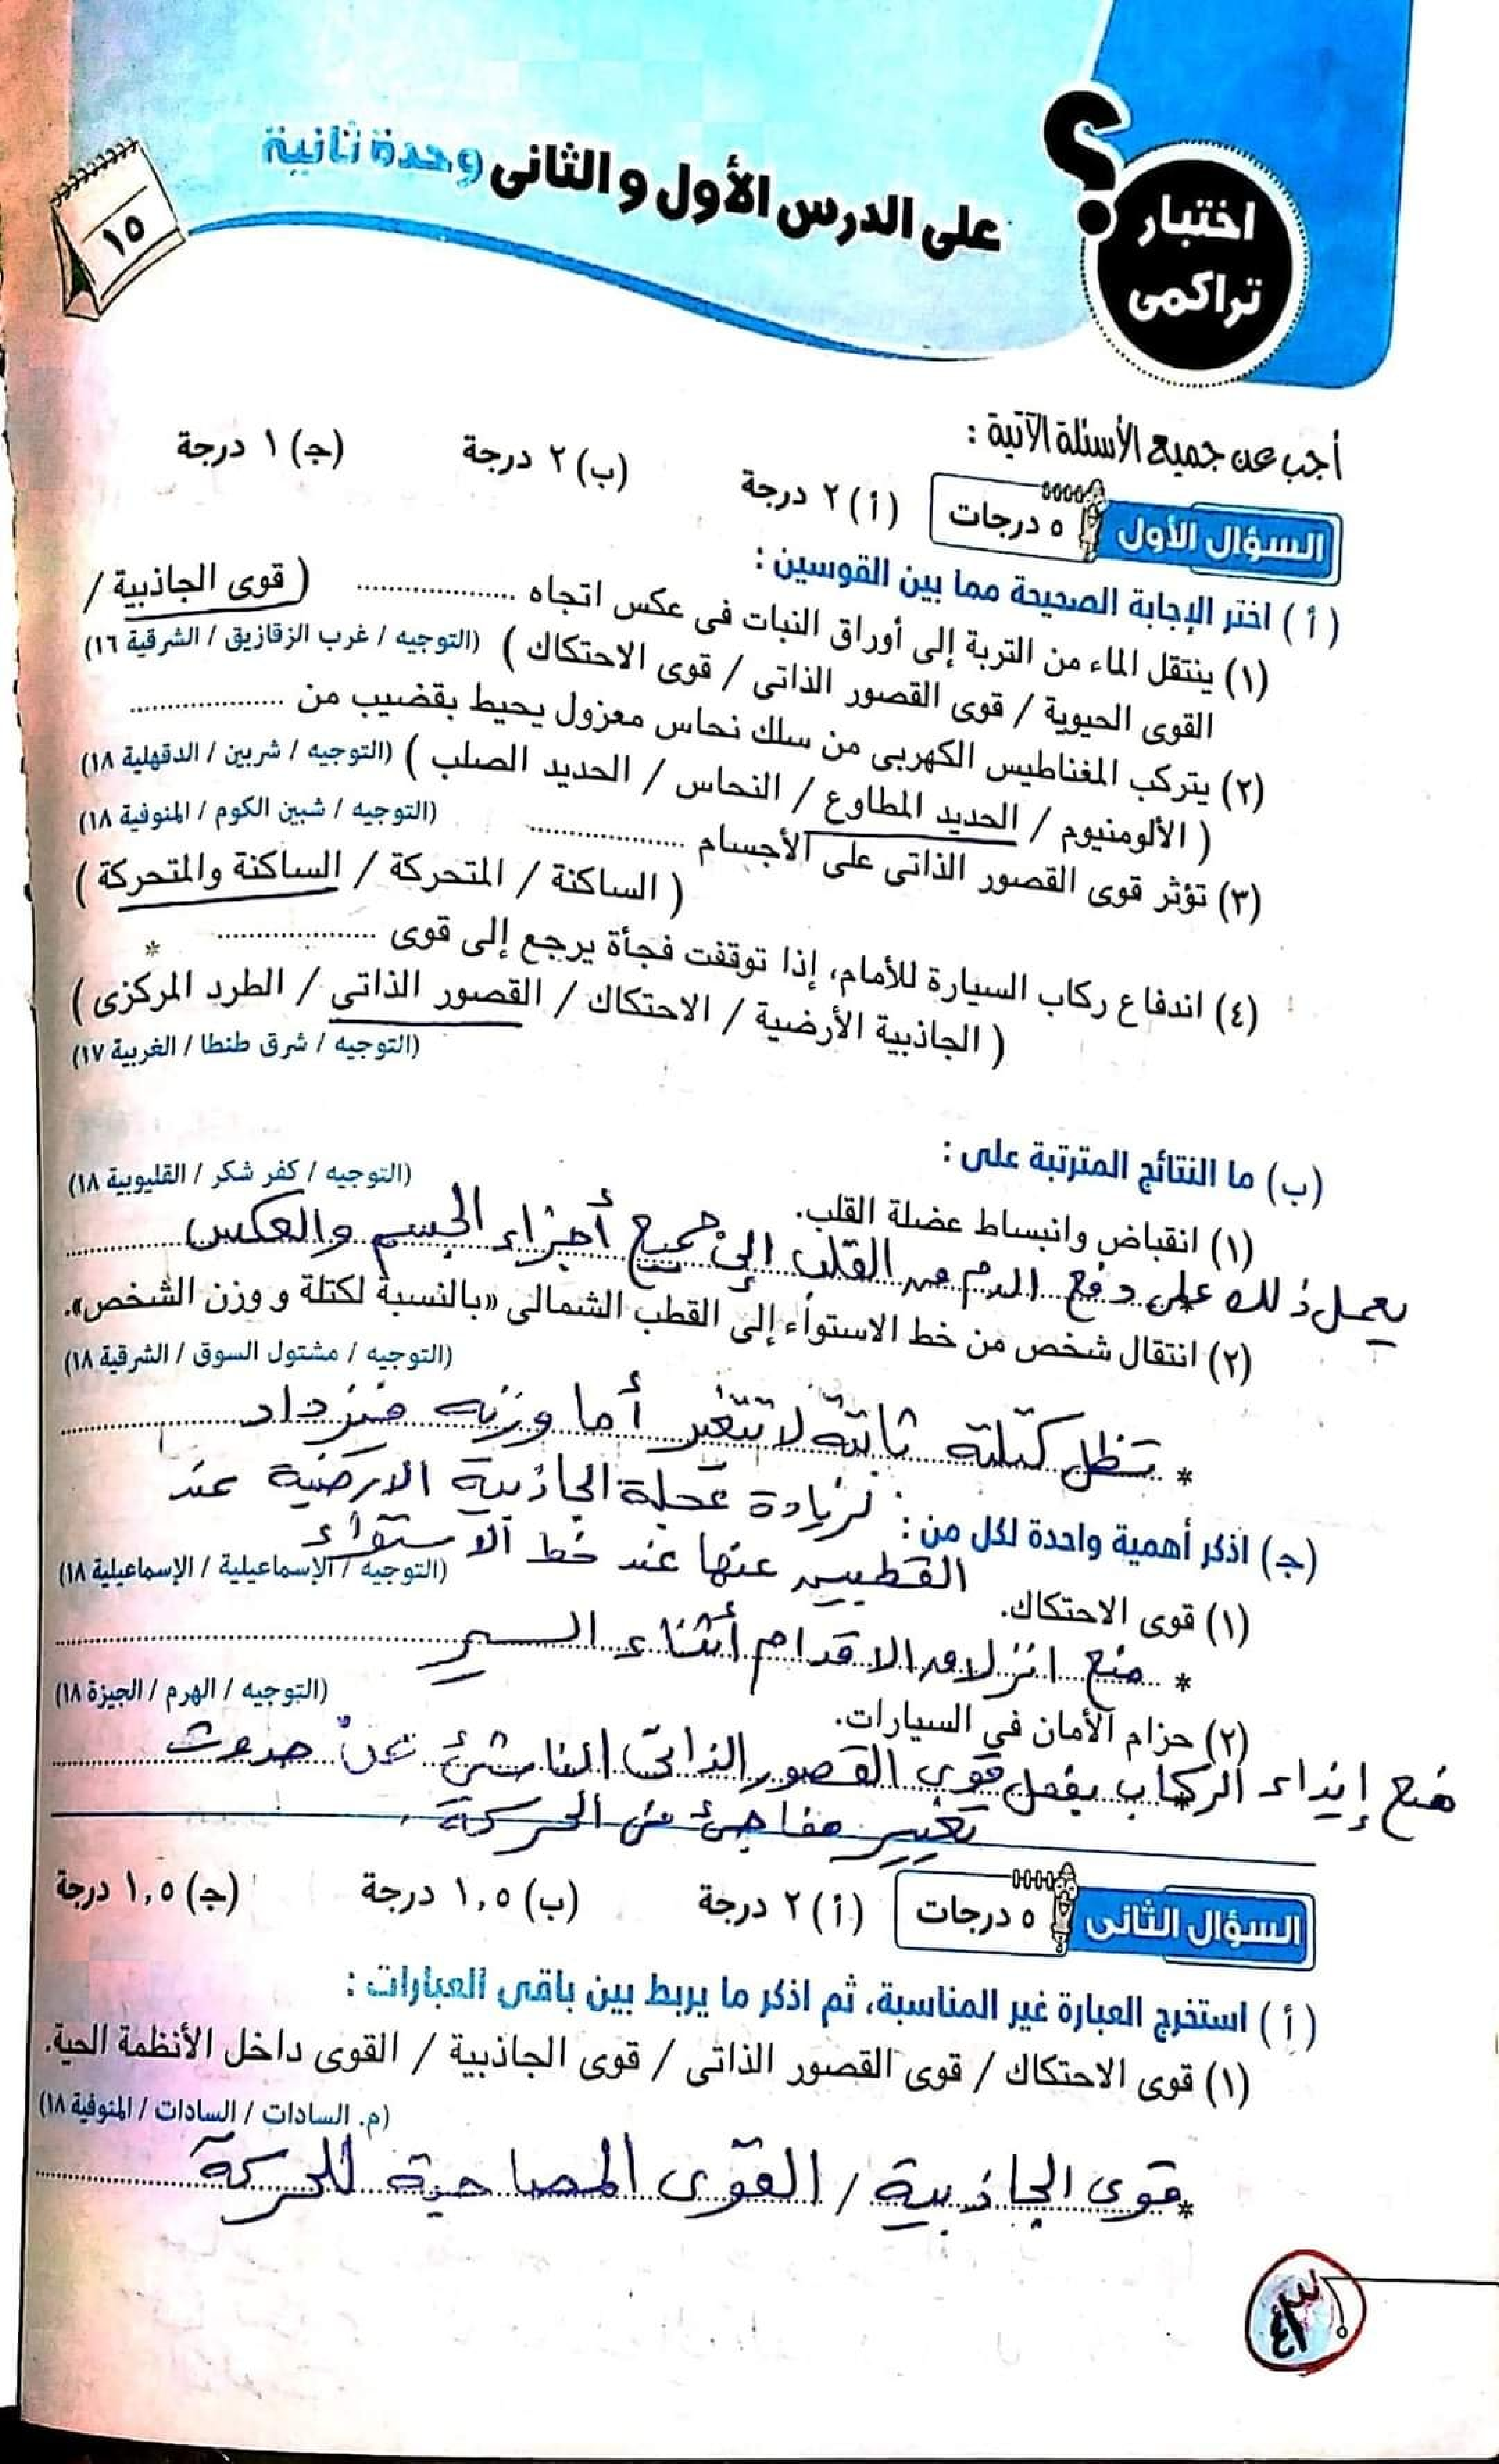 اختبار
تراكمى
؟
على الدرس الأول و الثانى وحدة ثانية
١٥
أجب عن جميع الأسئلة الآتية :
السؤال الأول ٥ درجات (أ) ٢ درجة (ب) ٢ درجة (جـ) ١ درجة
(أ) اختر الإجابة الصحيحة مما بين القوسين :
(١) ينتقل الماء من التربة إلى أوراق النبات فى عكس اتجاه .................. ( قوى الجاذبية /
القوى الحيوية / قوى القصور الذاتى / قوى الاحتكاك ) (التوجيه / غرب الزقازيق / الشرقية ١٦)
(٢) يتركب المغناطيس الكهربى من سلك نحاس معزول يحيط بقضيب من ..................
( الألومنيوم / الحديد المطاوع / النحاس / الحديد الصلب ) (التوجيه / شربين / الدقهلية ١٨)
(٣) تؤثر قوى القصور الذاتى على الأجسام .................. (التوجيه / شبين الكوم / المنوفية ١٨)
( الساكنة / المتحركة / الساكنة والمتحركة )
(٤) اندفاع ركاب السيارة للأمام، إذا توقفت فجأة يرجع إلى قوى .................. *
( الجاذبية الأرضية / الاحتكاك / القصور الذاتى / الطرد المركزى )
(التوجيه / شرق طنطا / الغربية ١٧)
(ب) ما النتائج المترتبة على :
(١) انقباض وانبساط عضلة القلب. (التوجيه / كفر شكر / القليوبية ١٨)
يعمل ذلك على دفع الدم من القلب إلى جميع أجزاء الجسم والعكس
(٢) انتقال شخص من خط الاستواء إلى القطب الشمالى «بالنسبة لكتلة و وزن الشخص».
(التوجيه / مشتول السوق / الشرقية ١٨)
* تظل كتلته ثابتة لا تتغير أما وزنه فيزداد
لزيادة عجلة الجاذبية الارضية عند
القطبين عنها عند خط الاستواء
(جـ) اذكر أهمية واحدة لكل من :
(١) قوى الاحتكاك. (التوجيه / الإسماعيلية / الإسماعيلية ١٨)
* منع انزلاق الاقدام أثناء السير
(٢) حزام الأمان فى السيارات. (التوجيه / الهرم / الجيزة ١٨)
منع إيذاء الركاب بفعل قوى القصور الذاتى الناشئ عن حدوث
تغيير مفاجئ فى الحركة .
السؤال الثانى ٥ درجات (أ) ٢ درجة (ب) ١,٥ درجة (جـ) ١,٥ درجة
(أ) استخرج العبارة غير المناسبة، ثم اذكر ما يربط بين باقى العبارات :
(١) قوى الاحتكاك / قوى القصور الذاتى / قوى الجاذبية / القوى داخل الأنظمة الحية.
(م. السادات / السادات / المنوفية ١٨)
* قوى الجاذبية / القوى المصاحبة للحركة